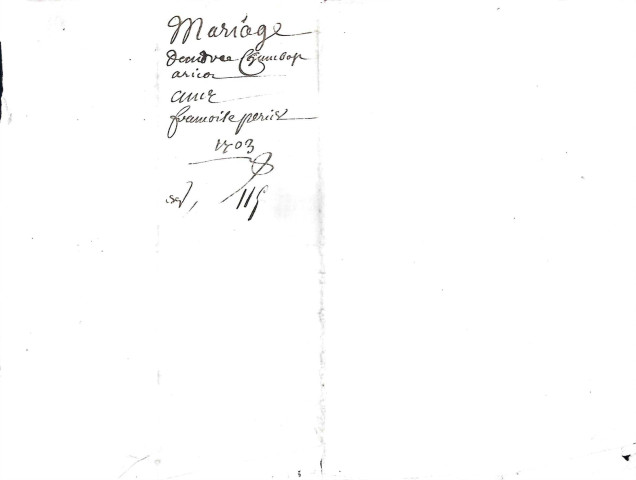 Mariage
dandree
aricol
avec
francoise perier
1703
115